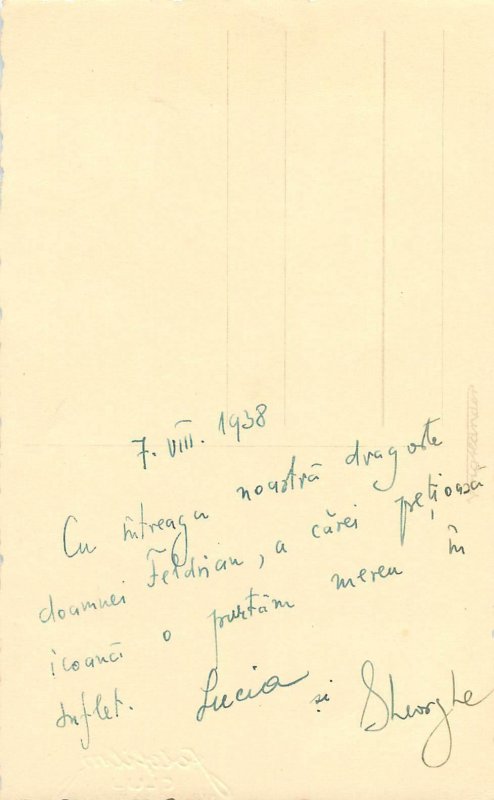 7. VIII. 1938
Cu întreaga noastră dragoste
doamnei Feldrian, a cărei prețioasă
icoană o purtăm mereu în
suflet. Lucia și Gheorghe